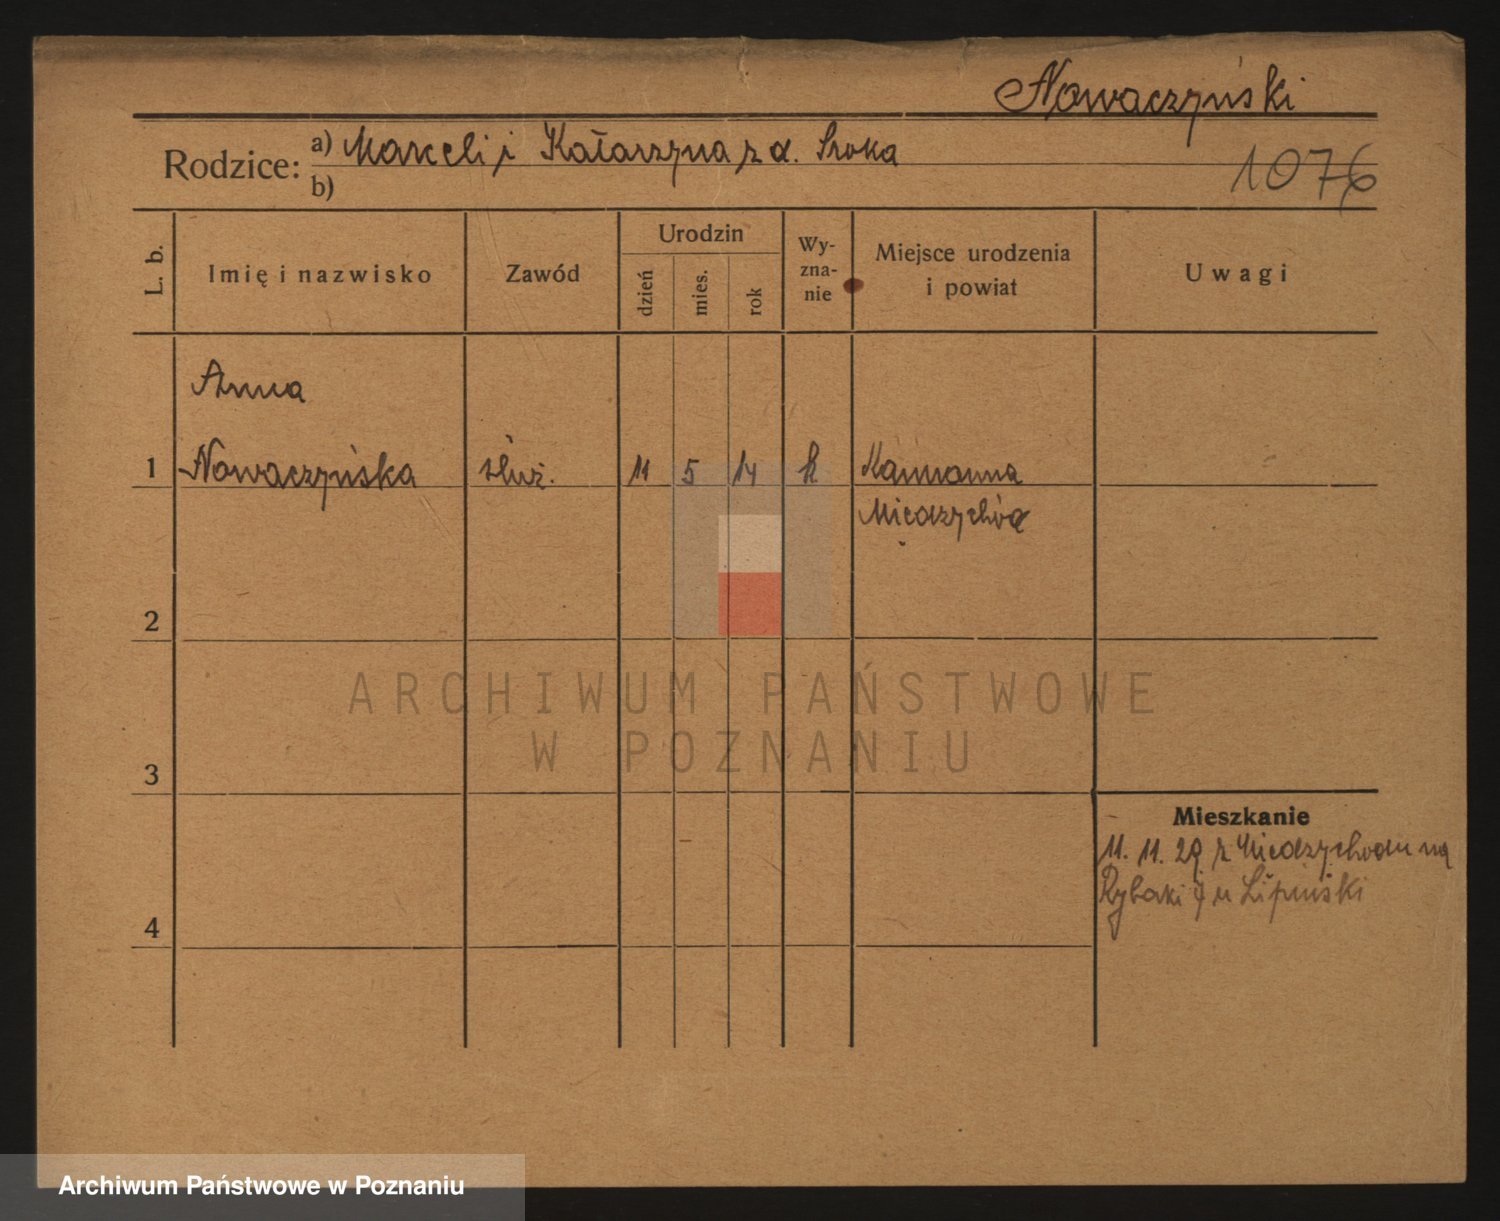 Nowaczyński
Rodzice: a) Marceli i Katarzyna z d. Sroka
1076
b)
L. b. Imię i nazwisko Zawód Urodzin dzień mies. rok Wyzna-nie Miejsce urodzenia i powiat Uwagi
Anna
1 Nowaczyńska służ. 11 5 14 k Kamionna
Międzychód
2
ARCHIWUM PAŃSTWOWE
W POZNANIU
3
Mieszkanie
11. 11. 29 z Międzychodu na
Rybaki u Lipiński
4
Archiwum Państwowe w Poznaniu